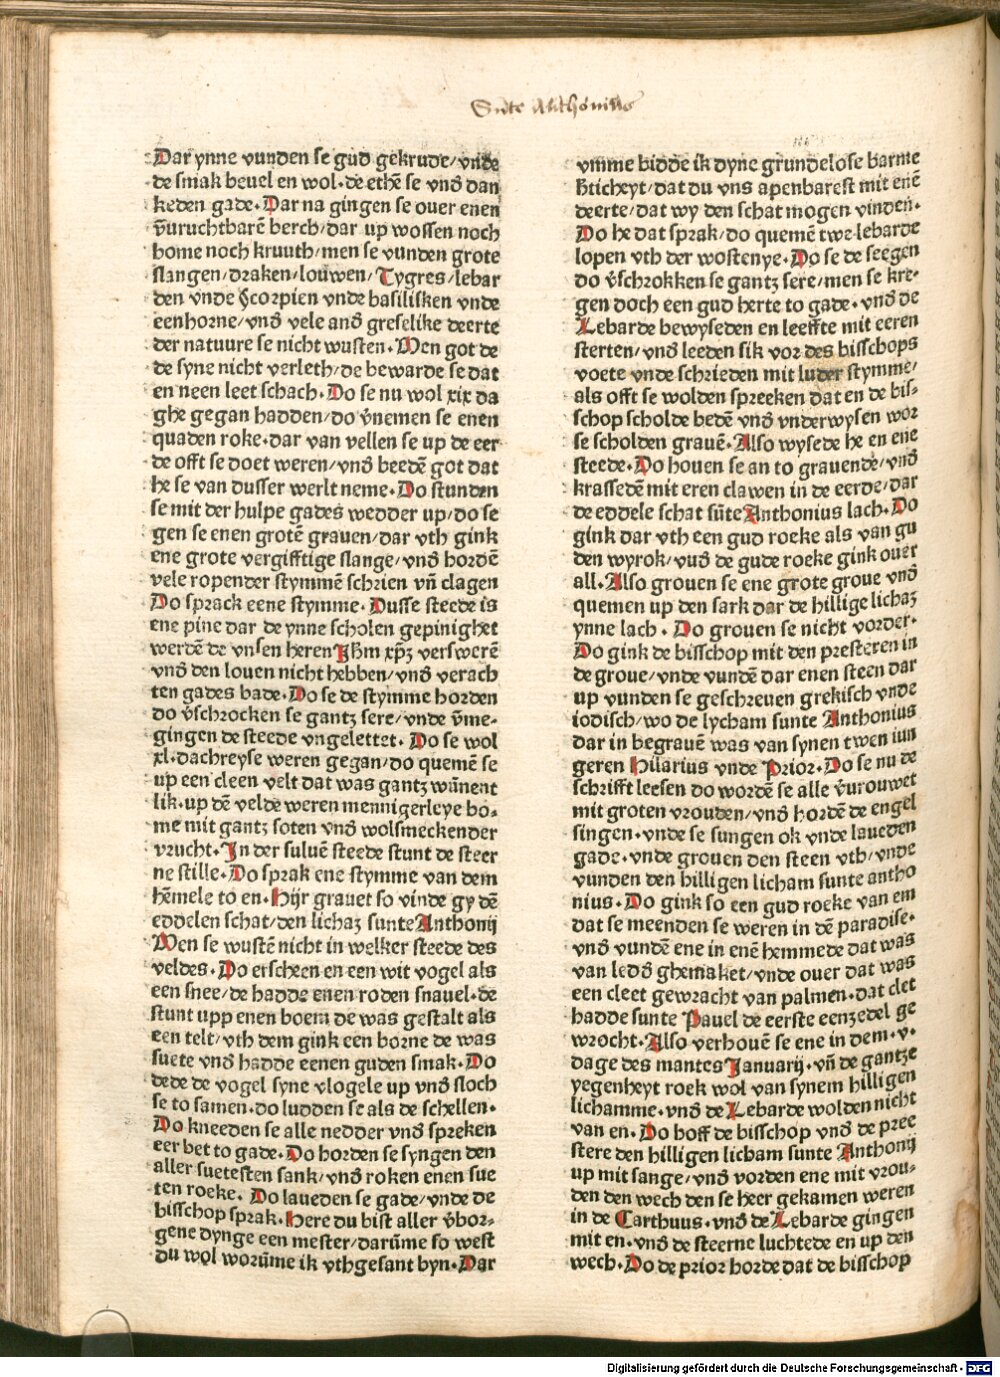 Sute Anthonius
Dar ynne vunden se gud gekrude/vnde
de smak beuel en wol·de ethē se vnd̄ dan
keden gade·Dar na gingen se ouer enen
v̄uruchtbarē berch/dar up wossen noch
home noch kruuth/men se vunden grote
slangen/draken/louwen/Tygres/lebar
den vnde Scorpien vnde basilisken vnde
eenhorne/vnd̄ vele and̄ greselike deerte
der natuure se nicht wusten·Men got de
de syne nicht verleth/de bewarde se dat
en neen leet schach·Do se nu wol xix da
ghe gegan hadden/do v̄nemen se enen
quaden roke·dar van vellen se up de eer
de offt se doet weren/vnd̄ beedē got dat
he se van dusser werlt neme·Do stunden
se mit der hulpe gades wedder up/do se
gen se enen grotē grauen/dar vth gink
ene grote vergifftige slange/vnd̄ hordē
vele ropender stymmē schrien vn̄ clagen
Do sprack eene stymme·Dusse steede is
ene pine dar de ynne scholen gepinighet
werdē de vnsen heren Jhm xp̄ꝫ verswerē
vnd̄ den louen nicht hebben/vnd̄ verach
ten gades bade·Do se de stymme horden
do v̄schrocken se gantꝫ sere/vnde v̄me-
gingen de steede vngelettet·Do se wol
xl·dachreyse weren gegan/do quemē se
up een cleen velt dat was gantꝫ wūnent
lik·up dē velde weren mennigerleye bo-
me mit gantꝫ soten vnd̄ wolsmeckender
vrucht·In der suluē steede stunt de steer
ne stille·Do sprak ene stymme van dem
hēmele to en·Hijr grauet so vinde gy dē
eddelen schat/den lichaꝫ sunte Anthonij
Men se wustē nicht in welker steede des
veldes·Do erscheen en een wit vogel als
een snee/de hadde enen roden snauel·de
stunt upp enen boem de was gestalt als
een telt/vth dem gink een borne de was
suete vnd̄ hadde eenen guden smak·Do
dede de vogel syne vlogele up vnd̄ sloch
se to samen·do ludden se als de schellen·
Do kneeden se alle nedder vnd̄ spreken
eer bet to gade·Do horden se syngen den
aller suetesten sank/vnd̄ roken enen sue
ten roeke·Do laueden se gade/vnde de
bisschop sprak·Here du bist aller v̄bor-
gene dynge een mester/darūme so west
du wol worūme ik vthgesant byn·Dar
vmme bidde ik dyne grundelose barme
hticheyt/dat du vns apenbarest mit enē
deerte/dat wy den schat mogen vinden·
Do he dat sprak/do quemē twe lebarde
lopen vth der wostenye·Do se de seegen
do v̄schrokken se gantꝫ sere/men se kre-
gen doch een gud herte to gade·vnd̄ de
Lebarde bewyseden en leeffte mit eeren
sterten/vnd̄ leeden sik vor des bisschops
voete vnde schrieden mit luder stymme/
als offt se wolden spreeken dat en de bis-
schop scholde bedē vnd̄ vnderwysen wor
se scholden grauē·Also wysede he en ene
steede·Do houen se an to grauende/vnd̄
krassedē mit eren clawen in de eerde/dar
de eddele schat sūte Anthonius lach·Do
gink dar vth een gud roeke als van gu
den wyrok/vnd̄ de gude roeke gink ouer
all·Also grouen se ene grote groue vnd̄
quemen up den sark dar de hillige lichaꝫ
ynne lach·Do grouen se nicht vorder·
Do gink de bisschop mit den presteren in
de groue/vnde vundē dar enen steen dar
up vunden se geschreuen grekisch vnde
iodisch/wo de lycham sunte Anthonius
dar in begrauē was van synen twen iun
geren Hilarius vnde Prior·Do se nu de
schrifft leesen do wordē se alle v̄urouwet
mit groten vrouden/vnd̄ hordē de engel
singen·vnde se sungen ok vnde laueden
gade·vnde grouen den steen vth/vnde
vunden den hilligen licham sunte antho
nius·Do gink so een gud roeke van em
dat se meenden se weren in dē paradise·
vnd̄ vundē ene in enē hemmede dat was
van led̄ ghemaket/vnde ouer dat was
een cleet gewracht van palmen·dat clet
hadde sunte Pauel de eerste eenzedel ge
wrocht·Also verhouē se ene in dem·v·
dage des mantes Januarij·vn̄ de gantze
yegenheyt roek wol van synem hilligen
lichamme·vnd̄ de Lebarde wolden nicht
van en·Do hoff de bisschop vnd̄ de pree
stere den hilligen licham sunte Anthonij
up mit sange/vnd̄ vorden ene mit vrou-
den den wech den se heer gekamen weren
in de Carthuus·vnd̄ de Lebarde gingen
mit en·vnd̄ de steerne luchtede en up den
wech·Do de prior horde dat de bisschop
Digitalisierung gefördert durch die Deutsche Forschungsgemeinschaft - DFG